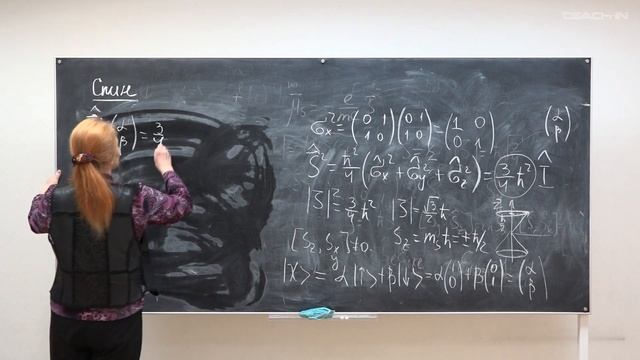 TEACH-IN
Спин
(α β) = 3/4
μ_s = e/m S
σ̂_x² = (0 1; 1 0)(0 1; 1 0) = (1 0; 0 1)
(α β)
Ŝ² = ħ²/4 (σ̂_x² + σ̂_y² + σ̂_z²) = 3/4 ħ² Î
|S|² = 3/4 ħ² |S| = √3/2 ħ
[S_z, S_x y] ≠ 0. S_z = m_s ħ = ± ħ/2
|χ> = α|↑> + β|↓> = α(1 0) + β(0 1) = (α β)